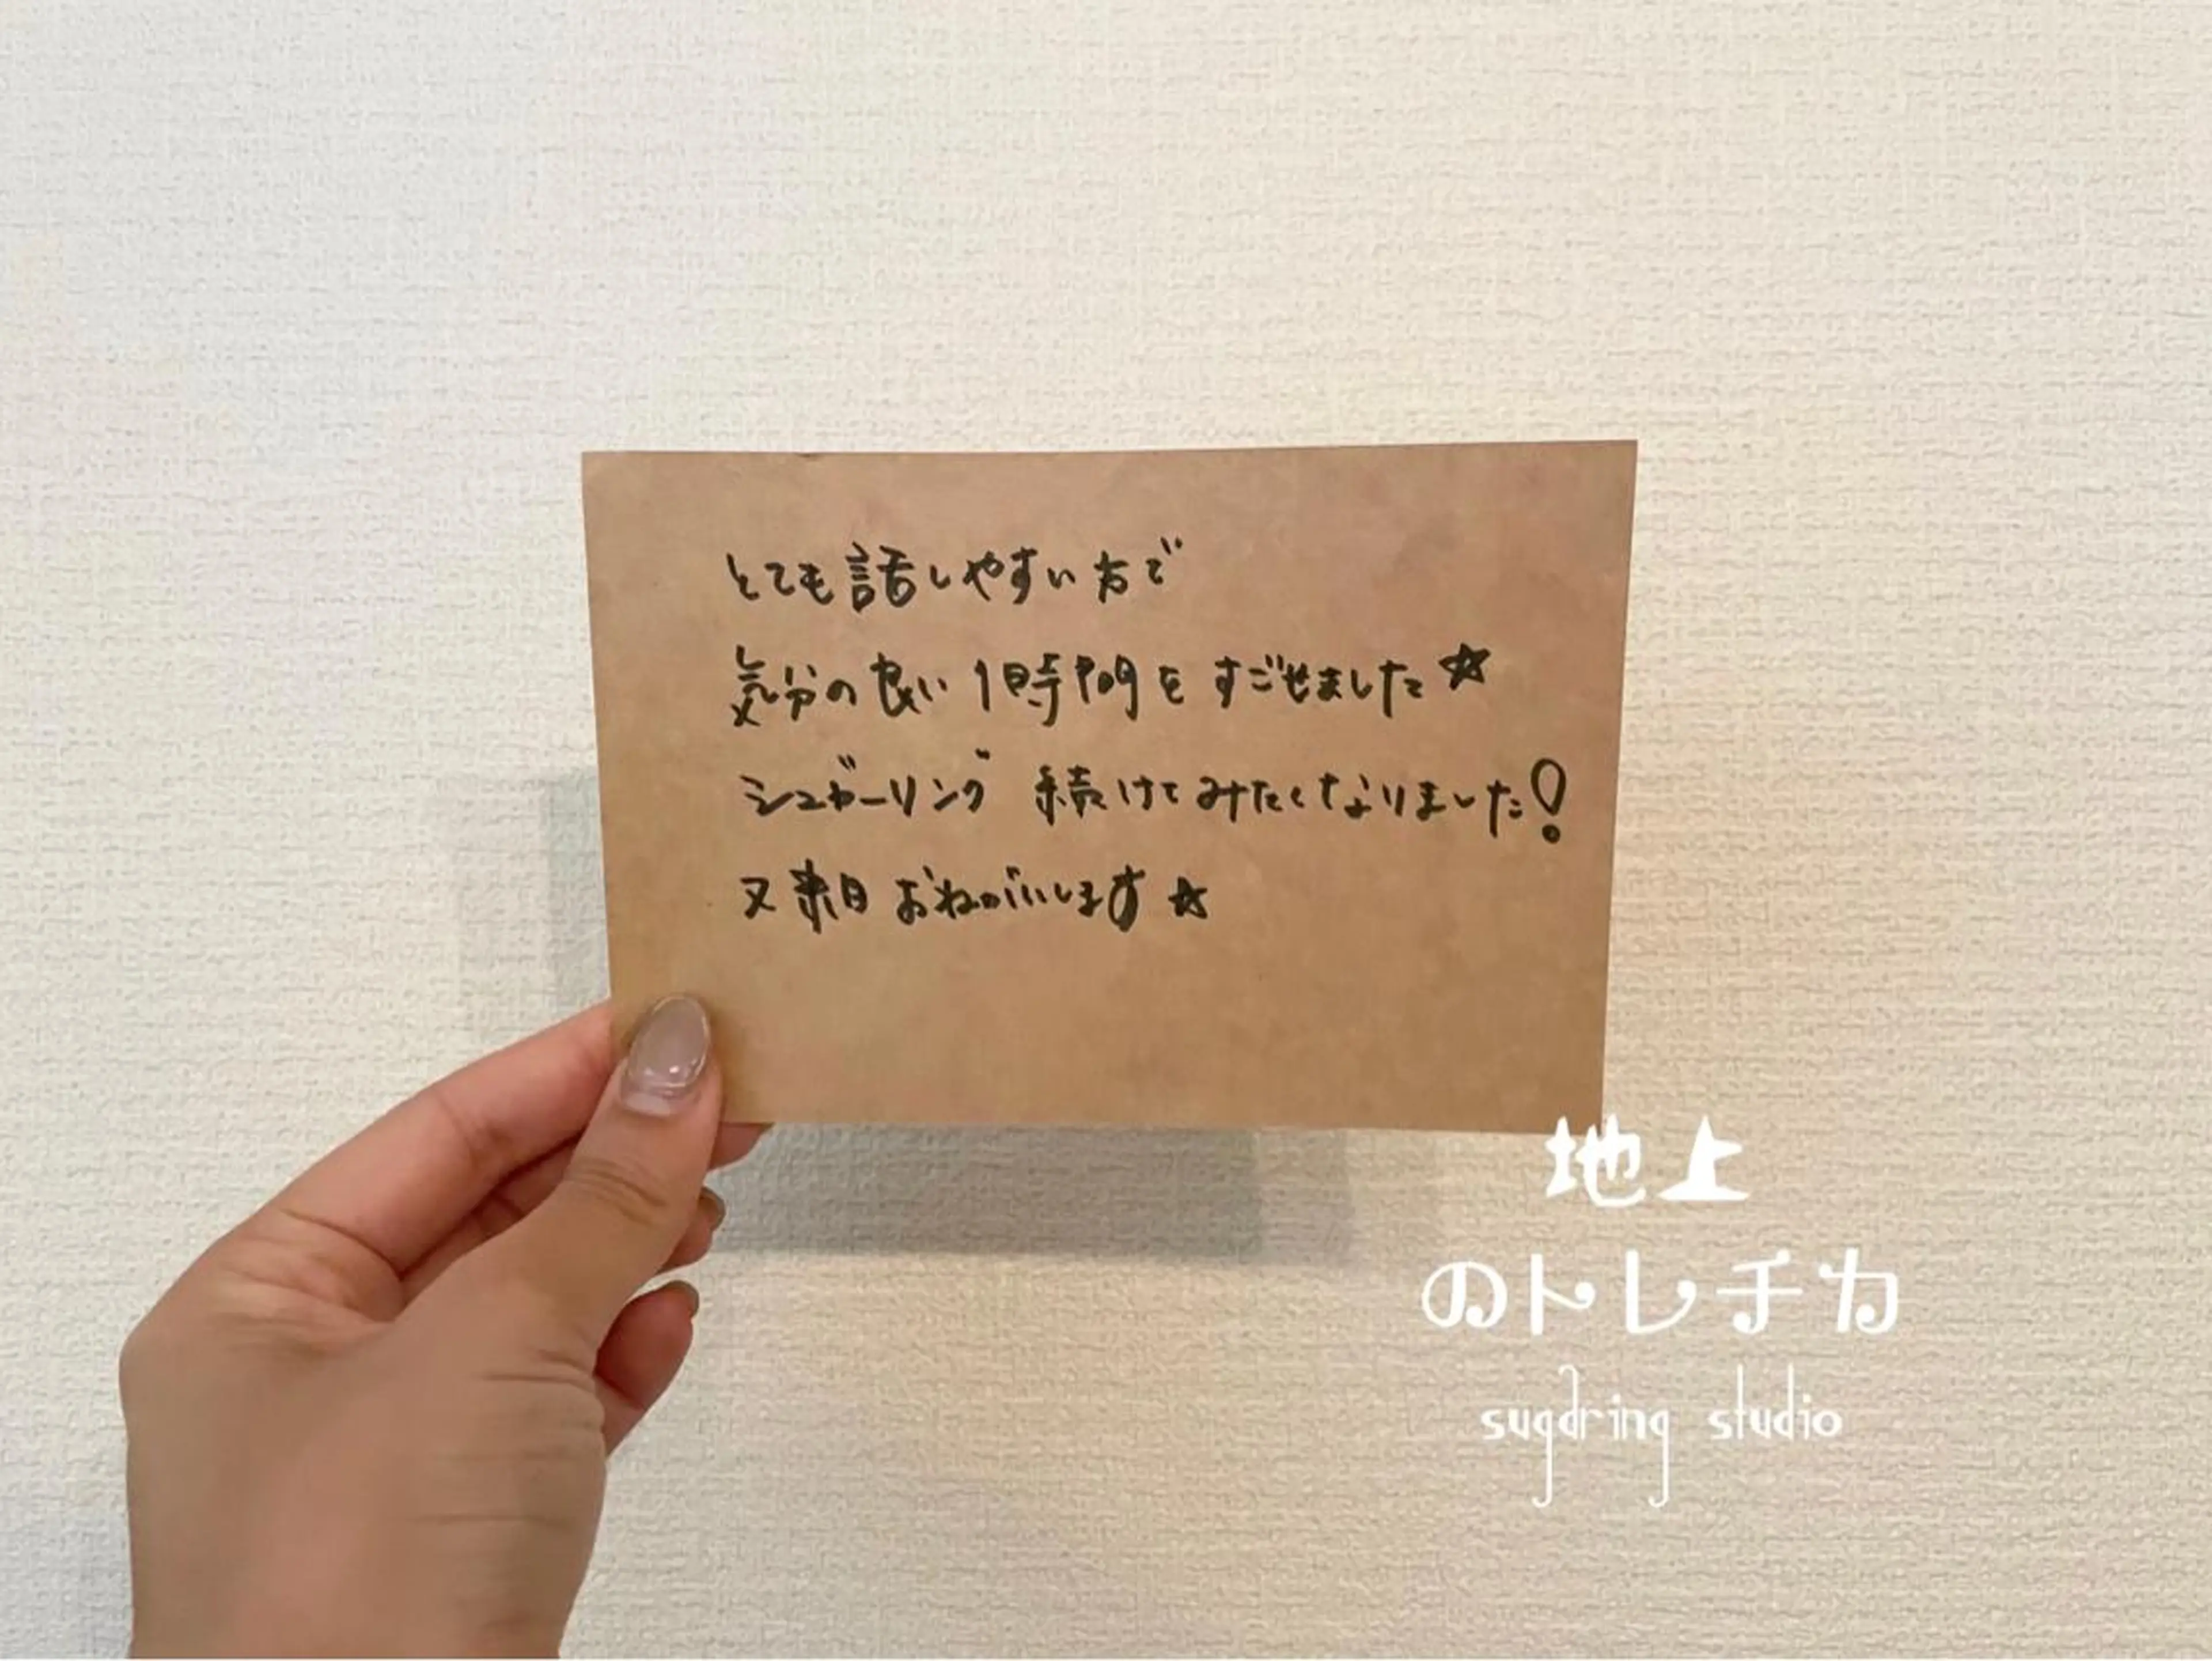 とても話しやすい方で
気分の良い1時間をすごせました☆
シュガーリング 続けてみたくなりました!
又来月おねがいします☆
地上
のトレチカ
sugaring studio